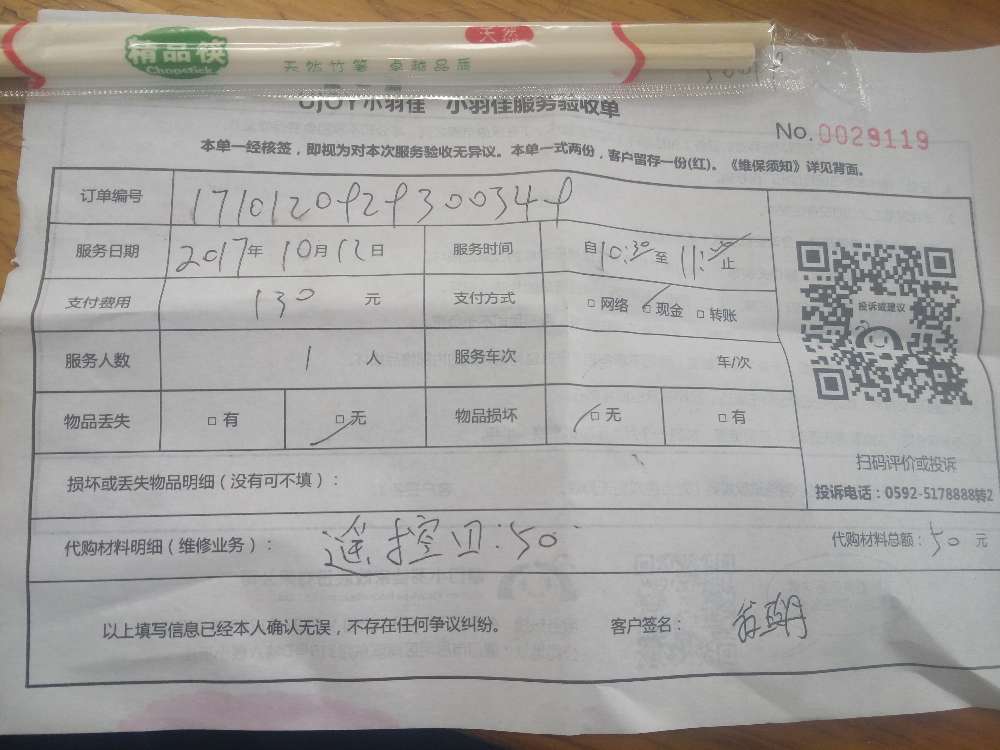 精品筷
Chopstick
天然
天然竹筷 卓越品质
UJOY小羽佳 小羽佳服务验收单
No.0029119
本单一经核签，即视为对本次服务验收无异议。本单一式两份，客户留存一份(红)。《维保须知》详见背面。
订单编号
服务日期 2017年 10月12日 服务时间 自10:30至11:00止
支付费用 130 元 支付方式 □网络 □现金 □转账
服务人数 1 人 服务车次 车/次
物品丢失 □有 □无 物品损坏 □无 □有
投诉或建议
扫码评价或投诉
投诉电话：0592-5178888转2
损坏或丢失物品明细（没有可不填）：
代购材料明细（维修业务）： 遥控口:50 代购材料总额：50元
以上填写信息已经本人确认无误，不存在任何争议纠纷。 客户签名：